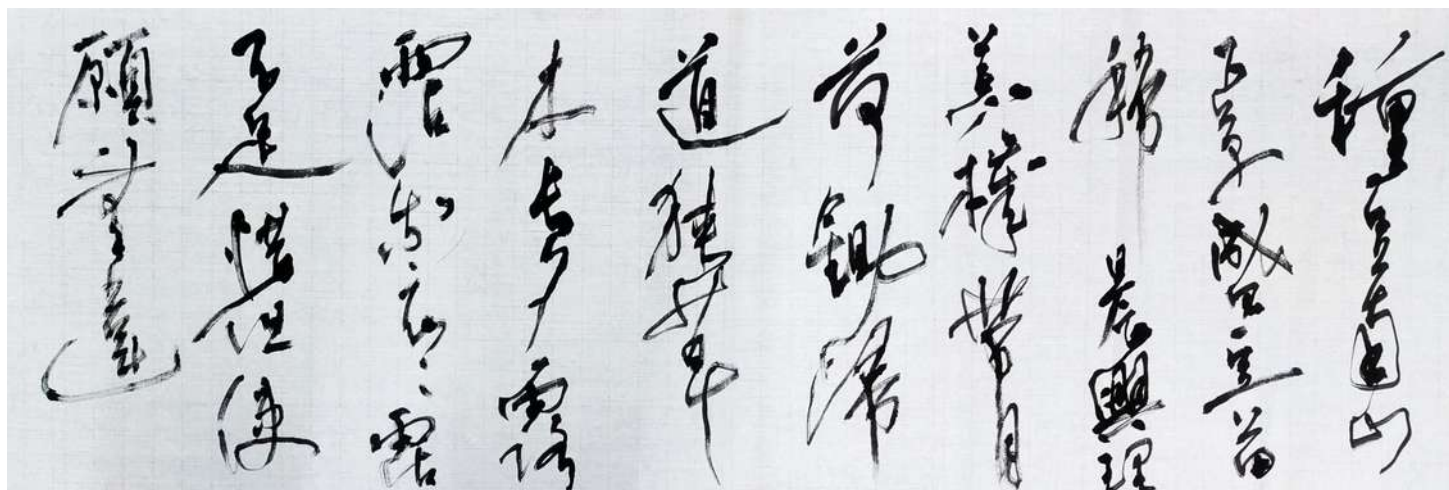 種豆南山
下草盛豆苗
稀晨興理
荒穢帶月
荷鋤歸
道狹草
木長夕露
霑我衣〻霑
不足惜但使
願無違